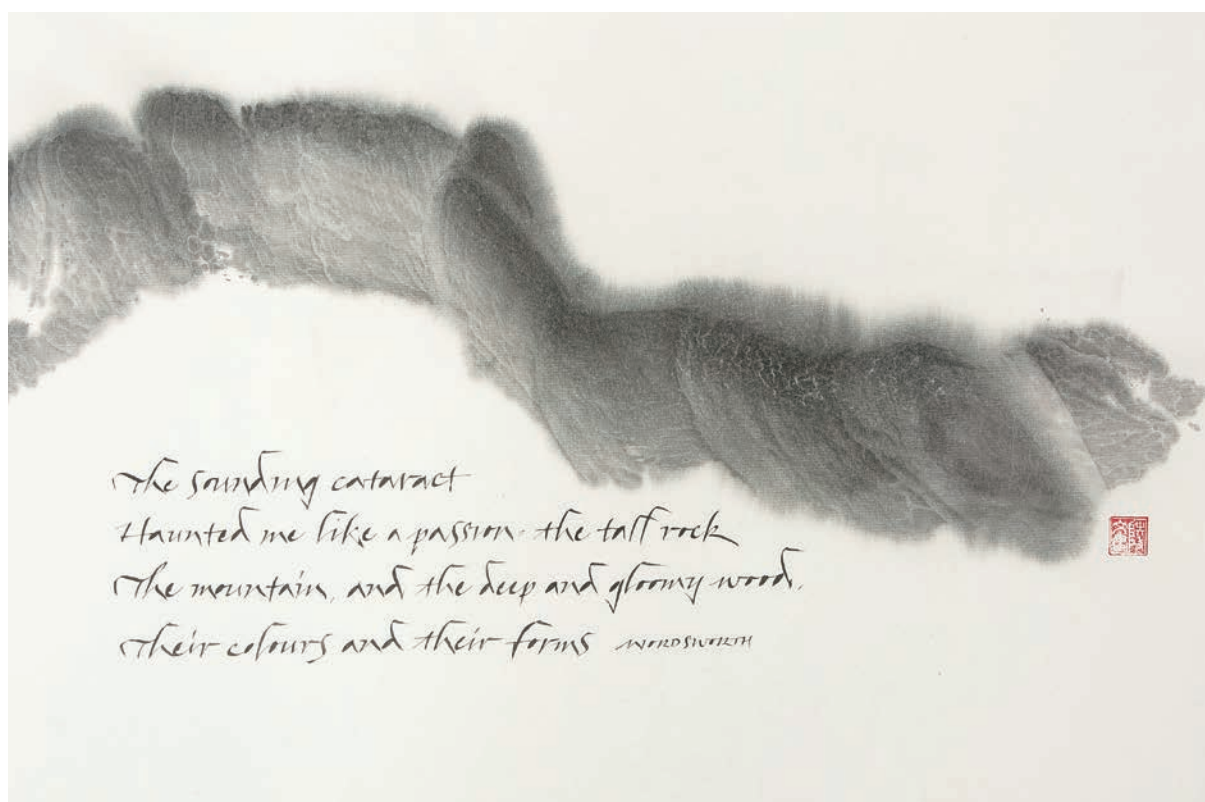 The sounding cataract
Haunted me like a passion· the tall rock
The mountain, and the deep and gloomy wood,
Their colours and their forms WORDSWORTH